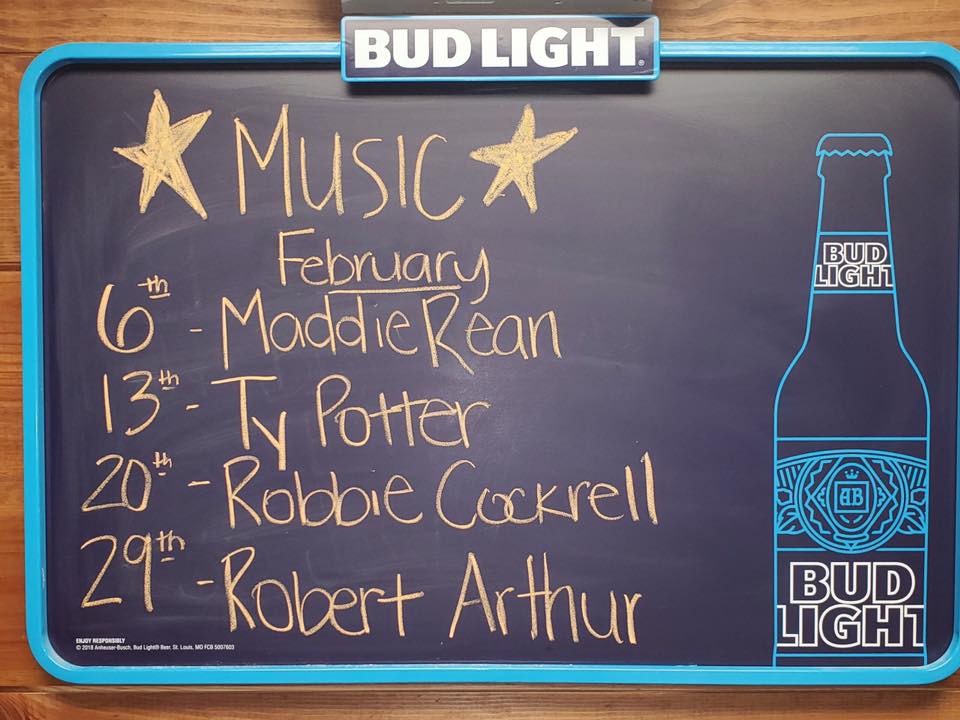 BUD LIGHT
MUSIC
February
6th - Maddie Rean
13th - Ty Potter
20th - Robbie Cockrell
29th - Robert Arthur
BUD
LIGHT
AB
BUD
LIGHT
ENJOY RESPONSIBLY
© 2018 Anheuser-Busch, Bud Light® Beer, St. Louis, MO FCB 5007603